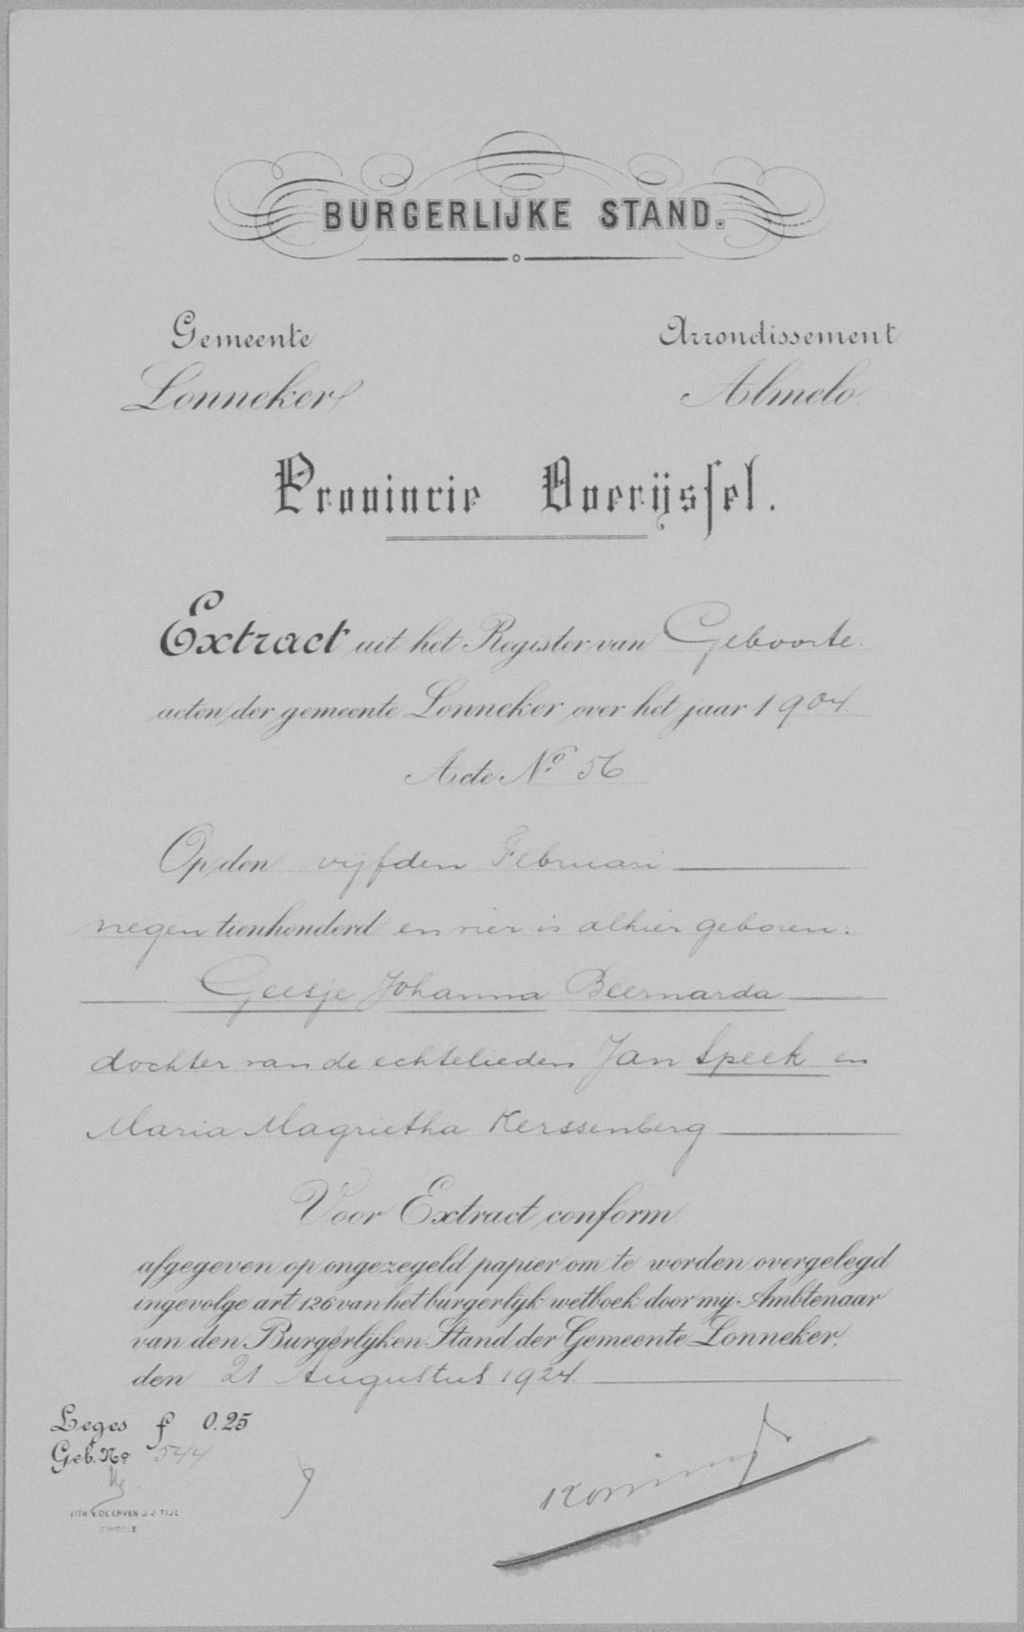 BURGERLIJKE STAND.
Gemeente
Lonneker
Arrondissement
Almelo.
Provincie Overijssel.
Extract uit het Register van Geboorte
acten der gemeente Lonneker over het jaar 1904.
Acte No 56
Op den vijfden Februari
negentienhonderd en vier is alhier geboren:
Geesje Johanna Beernarda
dochter van de echtelieden Jan Speek en
Maria Magrietha Kerssenberg
Voor Extract conform
afgegeven op ongezegeld papier om te worden overgelegd
ingevolge art. 126 van het burgerlijk wetboek door mij Ambtenaar
van den Burgerlijken Stand der Gemeente Lonneker,
den 21 Augustus 1924
Leges f 0.25
Geb. No 544
LITH. v. DE ERVEN J. J. TIJL
ZWOLLE